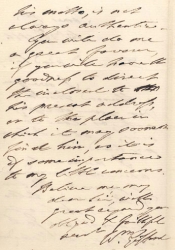 this matter, is not
always authentic.
You will do me
a great favour
if you will have the
goodness to direct
the inclosed to
his present address
or to the place in
which it may soonest
find him, as it is
of some importance
to my little concerns.
Believe me my
dear Sir, with
great regard your
obliged & faithful
W.